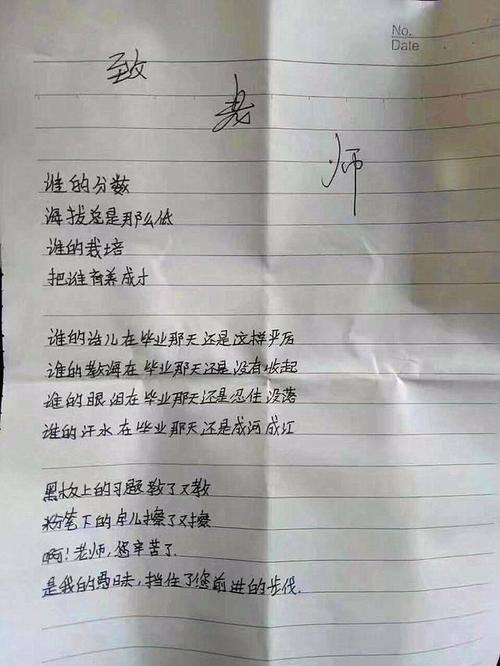 No.
Date
致老师
谁的分数
海拔总是那么低
谁的栽培
把谁育养成才
谁的话儿在毕业那天还是这样严厉
谁的教诲在毕业那天还是没有收起
谁的眼泪在毕业那天还是忍住没落
谁的汗水在毕业那天还是成河成江
黑板上的习题教了又教
粉笔下的字儿擦了又擦
啊!老师,您辛苦了.
是我的愚昧,挡住了您前进的步伐.